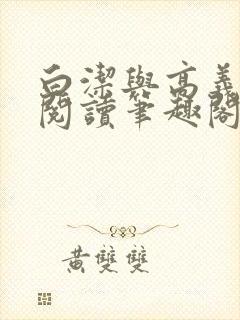 白潔與高義
閱讀筆趣閣
黃雙雙